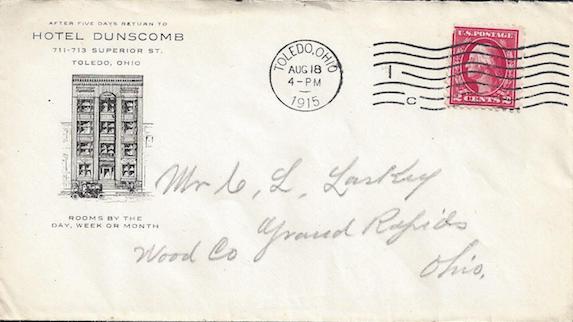 AFTER FIVE DAYS RETURN TO
HOTEL DUNSCOMB
711-713 SUPERIOR ST.
TOLEDO, OHIO
ROOMS BY THE
DAY, WEEK OR MONTH
TOLEDO, OHIO
AUG 18
4-PM
1915
1
C
U.S. POSTAGE
2 CENTS 2
Mr C, L, Laskey
Grand Rapids
Wood Co
Ohio.